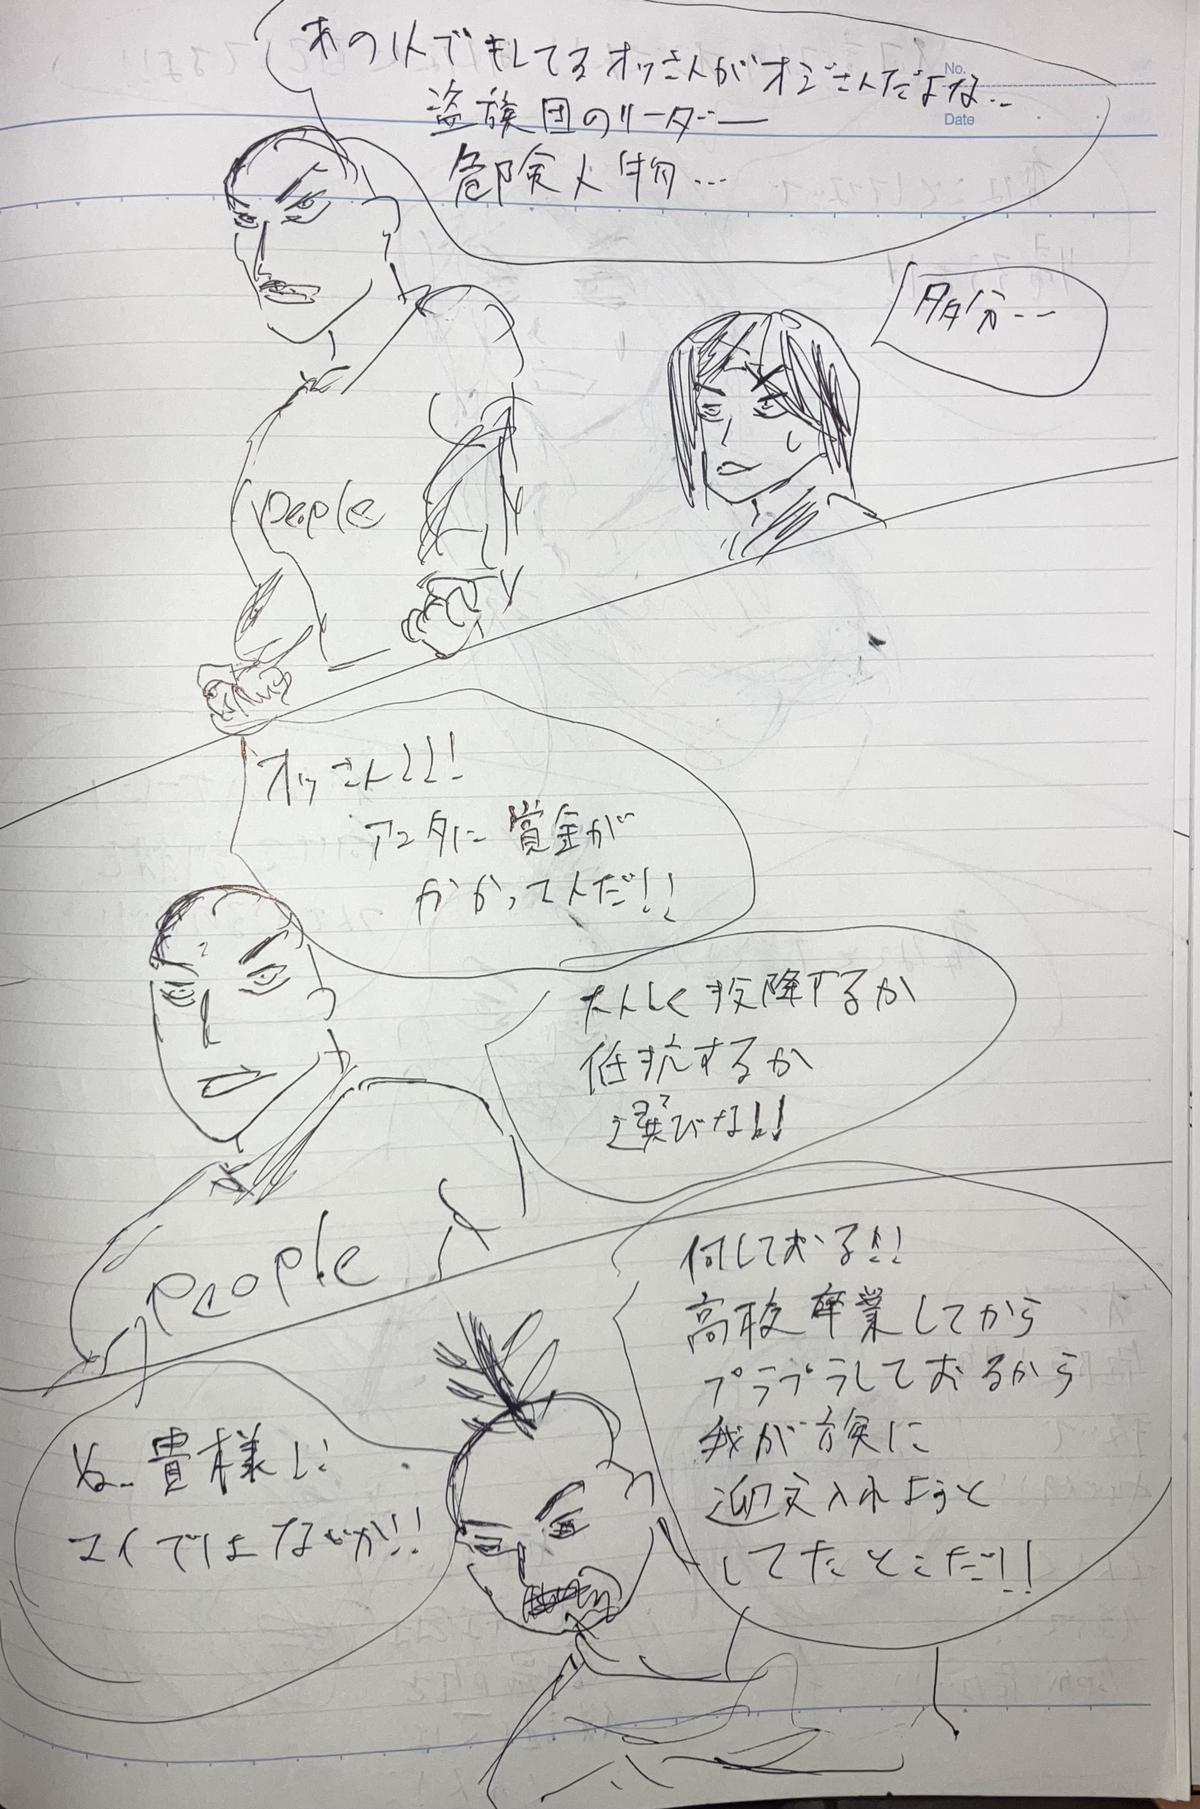 あの1人でキしてるオッさんがオジさんだよな…
No.
Date
盗族団のリーダー
危険人物…
多分…
people
オッさん!!!
アンタに賞金が
かかってんだ!!
大人しく投降するか
低抗するか
選びな!!
people
何しておる!!
高校卒業してから
プラプラしておるから
我が族に
迎え入れようと
してたとこだ!!
ぬ…貴様らに
マイではないか!!